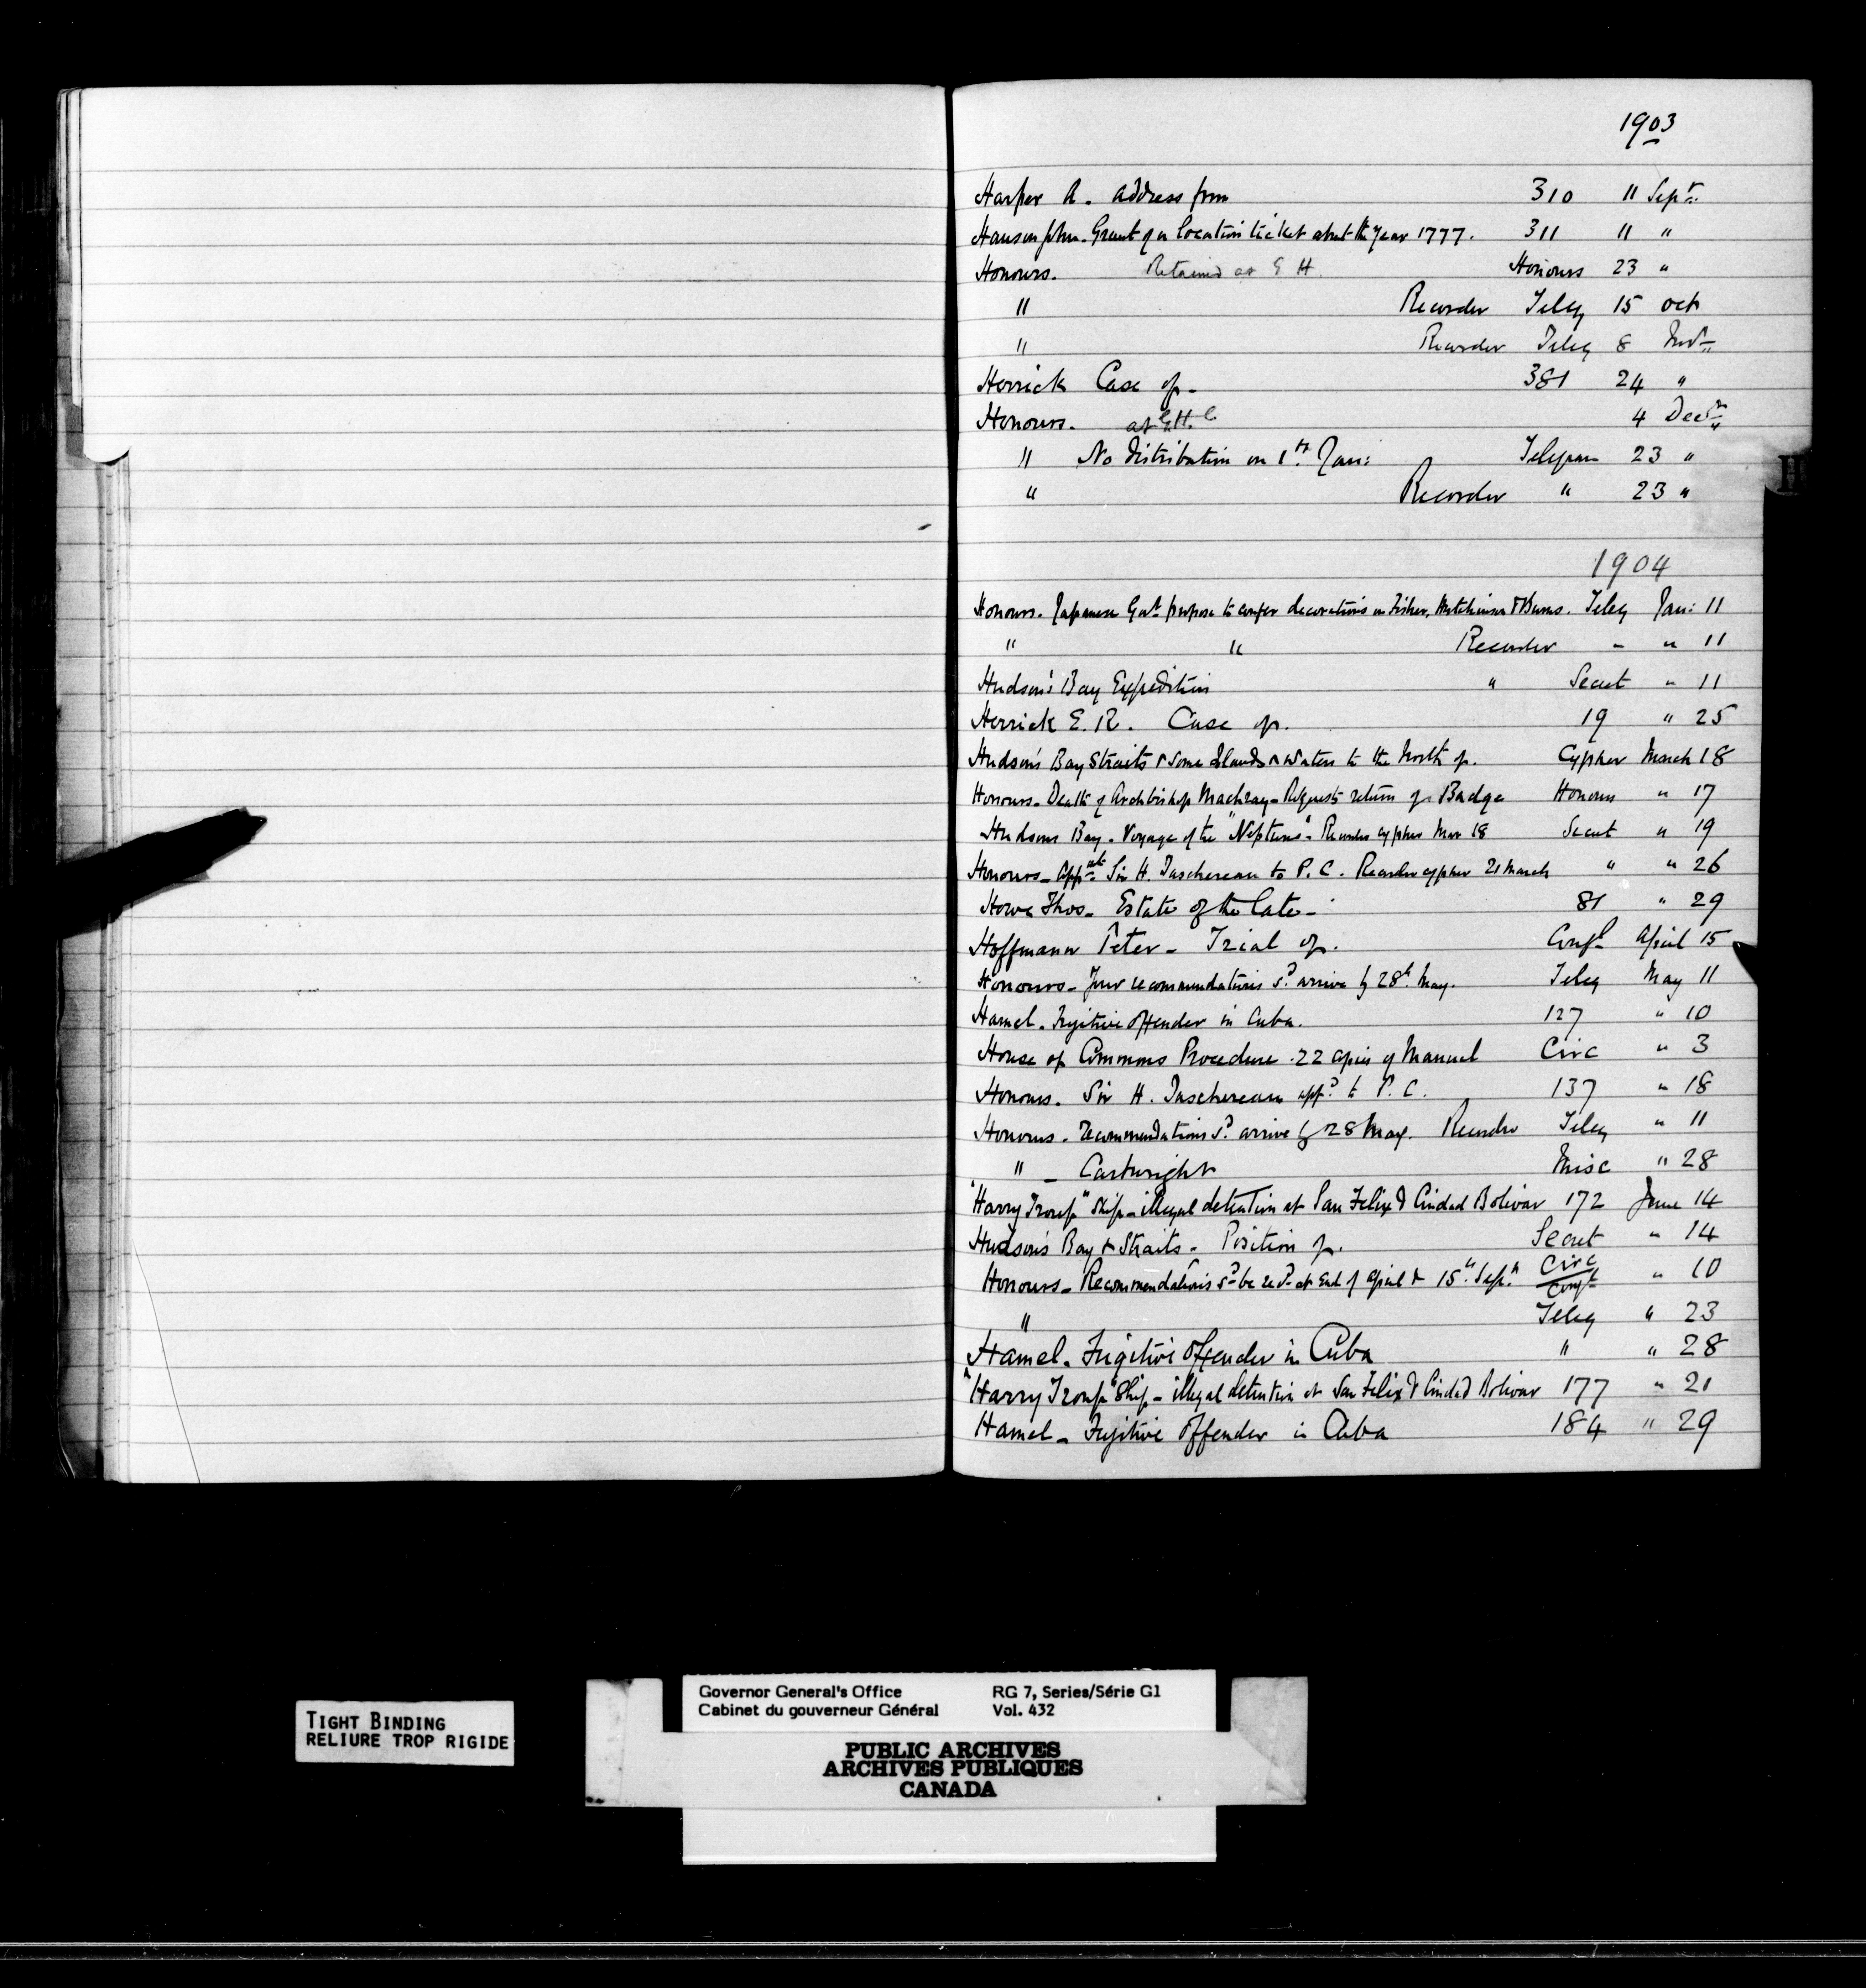 1903
Harper A. Address from 310 11 Sept.
Hanson John. Grant of a location ticket about the year 1777. 311 11 "
Honours. Retained at G H. Honours 23 "
" Recorder Teleg 15 Oct
" Recorder Teleg 8 Nov
Herrick Case of 381 24 "
Honours. at 4 Decr
" No distribution on 1st Jan: Telegram 23 "
" Recorder " 23 "
1904
Honours. Japanese Govt. propose to confer decorations on Fisher, Hutchinson & Burns. Teleg Jan: 11
" " Recorder - " 11
Hudson's Bay Expedition " Secret " 11
Herrick E. R. Case of. 19 " 25
Hudson's Bay Straits & some Islands & waters to the North of. Cypher March 18
Honours - Death of Archbishop Machray - Requests return of Badge Honours " 17
Hudsons Bay. Voyage of the "Neptune". Recorder cypher Mar 18 Secret " 19
Honours - Appmt. Sir H. Taschereau to P. C. Recorder cypher 21 March " " 26
Howe Thos - Estate of the late - 81 " 29
Hoffmann Peter - Trial of. Confl April 15
Honours - recommendations sd. arrive by 28th May. Teleg May 11
Hamel. Fugitive offender in Cuba. 127 " 10
House of Commons Procedure. 22 copies of Manual Circ " 3
Honours. Sir H. Taschereau appd. to P. C. 137 " 18
Honours - recommendations sd. arrive by 28 May. Recorder Teleg " 11
" - Cartwright Misc " 28
"Harry Troup" Ship - illegal detention at San Felix & Ciudad Bolivar 172 June 14
Hudson's Bay & Straits - Position of. Secret " 14
Honours - Recommendations sd. be recd. at end of April & 15th Sept. Circ Confl " 10
" Teleg " 23
Hamel. Fugitive Offender in Cuba " " 28
"Harry Troup" Ship - illegal detention at San Felix & Ciudad Bolivar 177 " 21
Hamel - Fugitive Offender in Cuba 184 " 29
TIGHT BINDING
RELIURE TROP RIGIDE
Governor General's Office RG 7, Series/Série G1
Cabinet du gouverneur Général Vol. 432
PUBLIC ARCHIVES
ARCHIVES PUBLIQUES
CANADA